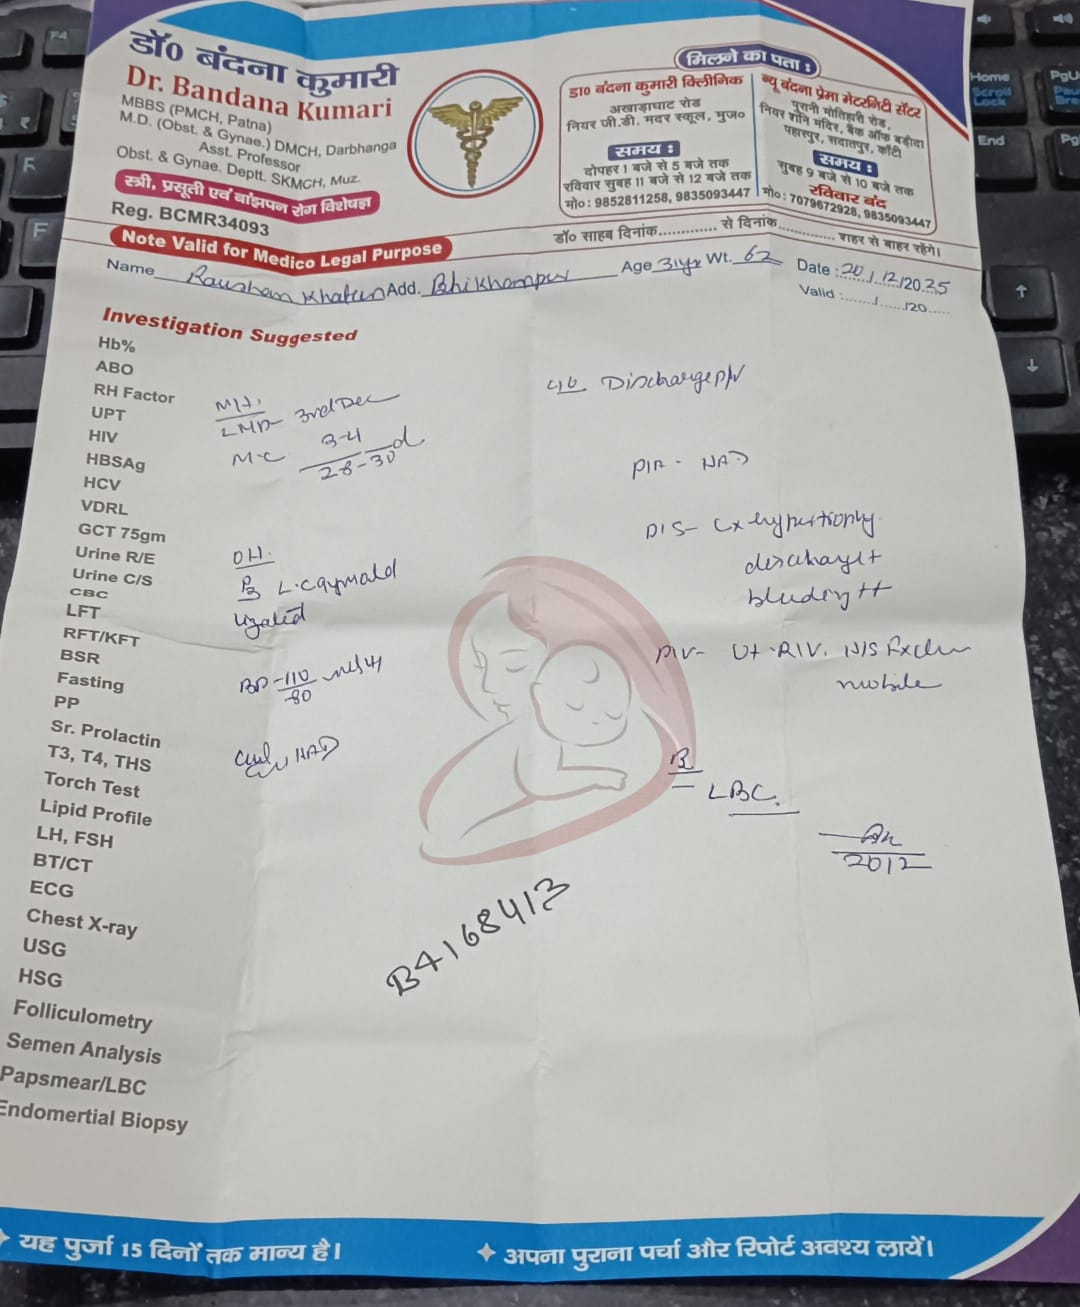 डॉ० बंदना कुमारी
Dr. Bandana Kumari
MBBS (PMCH, Patna)
M.D. (Obst. & Gynae.) DMCH, Darbhanga
Asst. Professor
Obst. & Gynae. Deptt. SKMCH, Muz.
स्त्री, प्रसूती एवं बांझपन रोग विशेषज्ञ
Reg. BCMR34093
Note Valid for Medico Legal Purpose
मिलने का पता :
डा० बंदना कुमारी क्लीनिक
अखाड़ाघाट रोड
नियर जी.डी. मदर स्कूल, मुज०
समय :
दोपहर 1 बजे से 5 बजे तक
रविवार सुबह 11 बजे से 12 बजे तक
मो० : 9852811258, 9835093447
न्यू बंदना प्रेमा मेटरनिटी सेंटर
पुरानी मोतिहारी रोड,
नियर शनि मंदिर, बैंक ऑफ बड़ौदा
पहारपुर, सदातपुर, काँटी
समय :
सुबह 9 बजे से 10 बजे तक
रविवार बंद
मो० : 7079672928, 9835093447
डॉ० साहब दिनांक............. से दिनांक............. शहर से बाहर रहेंगे।
Name Raushan Khatun Add. Bhikhanpur Age 31yr Wt. 62 Date : 20/12/2025
Valid :......./......./20.....
Investigation Suggested
Hb%
ABO
RH Factor
UPT
HIV
HBSAg
HCV
VDRL
GCT 75gm
Urine R/E
Urine C/S
CBC
LFT
RFT/KFT
BSR
Fasting
PP
Sr. Prolactin
T3, T4, THS
Torch Test
Lipid Profile
LH, FSH
BT/CT
ECG
Chest X-ray
USG
HSG
Folliculometry
Semen Analysis
Papsmear/LBC
Endomertial Biopsy
M/H.
LMP- 3rd Dec
M.C 3-4
28-30 d
OH.
BP -110
-80
NAD
c/o Discharge P/V
P/A - NAD
P/S- Cx hypertrophy
discharge +
bleeding ++
P/V- Ut - R/V. N/S
mobile
LBC.
2012
B4168413
यह पुर्जा 15 दिनों तक मान्य है।
अपना पुराना पर्चा और रिपोर्ट अवश्य लायें।